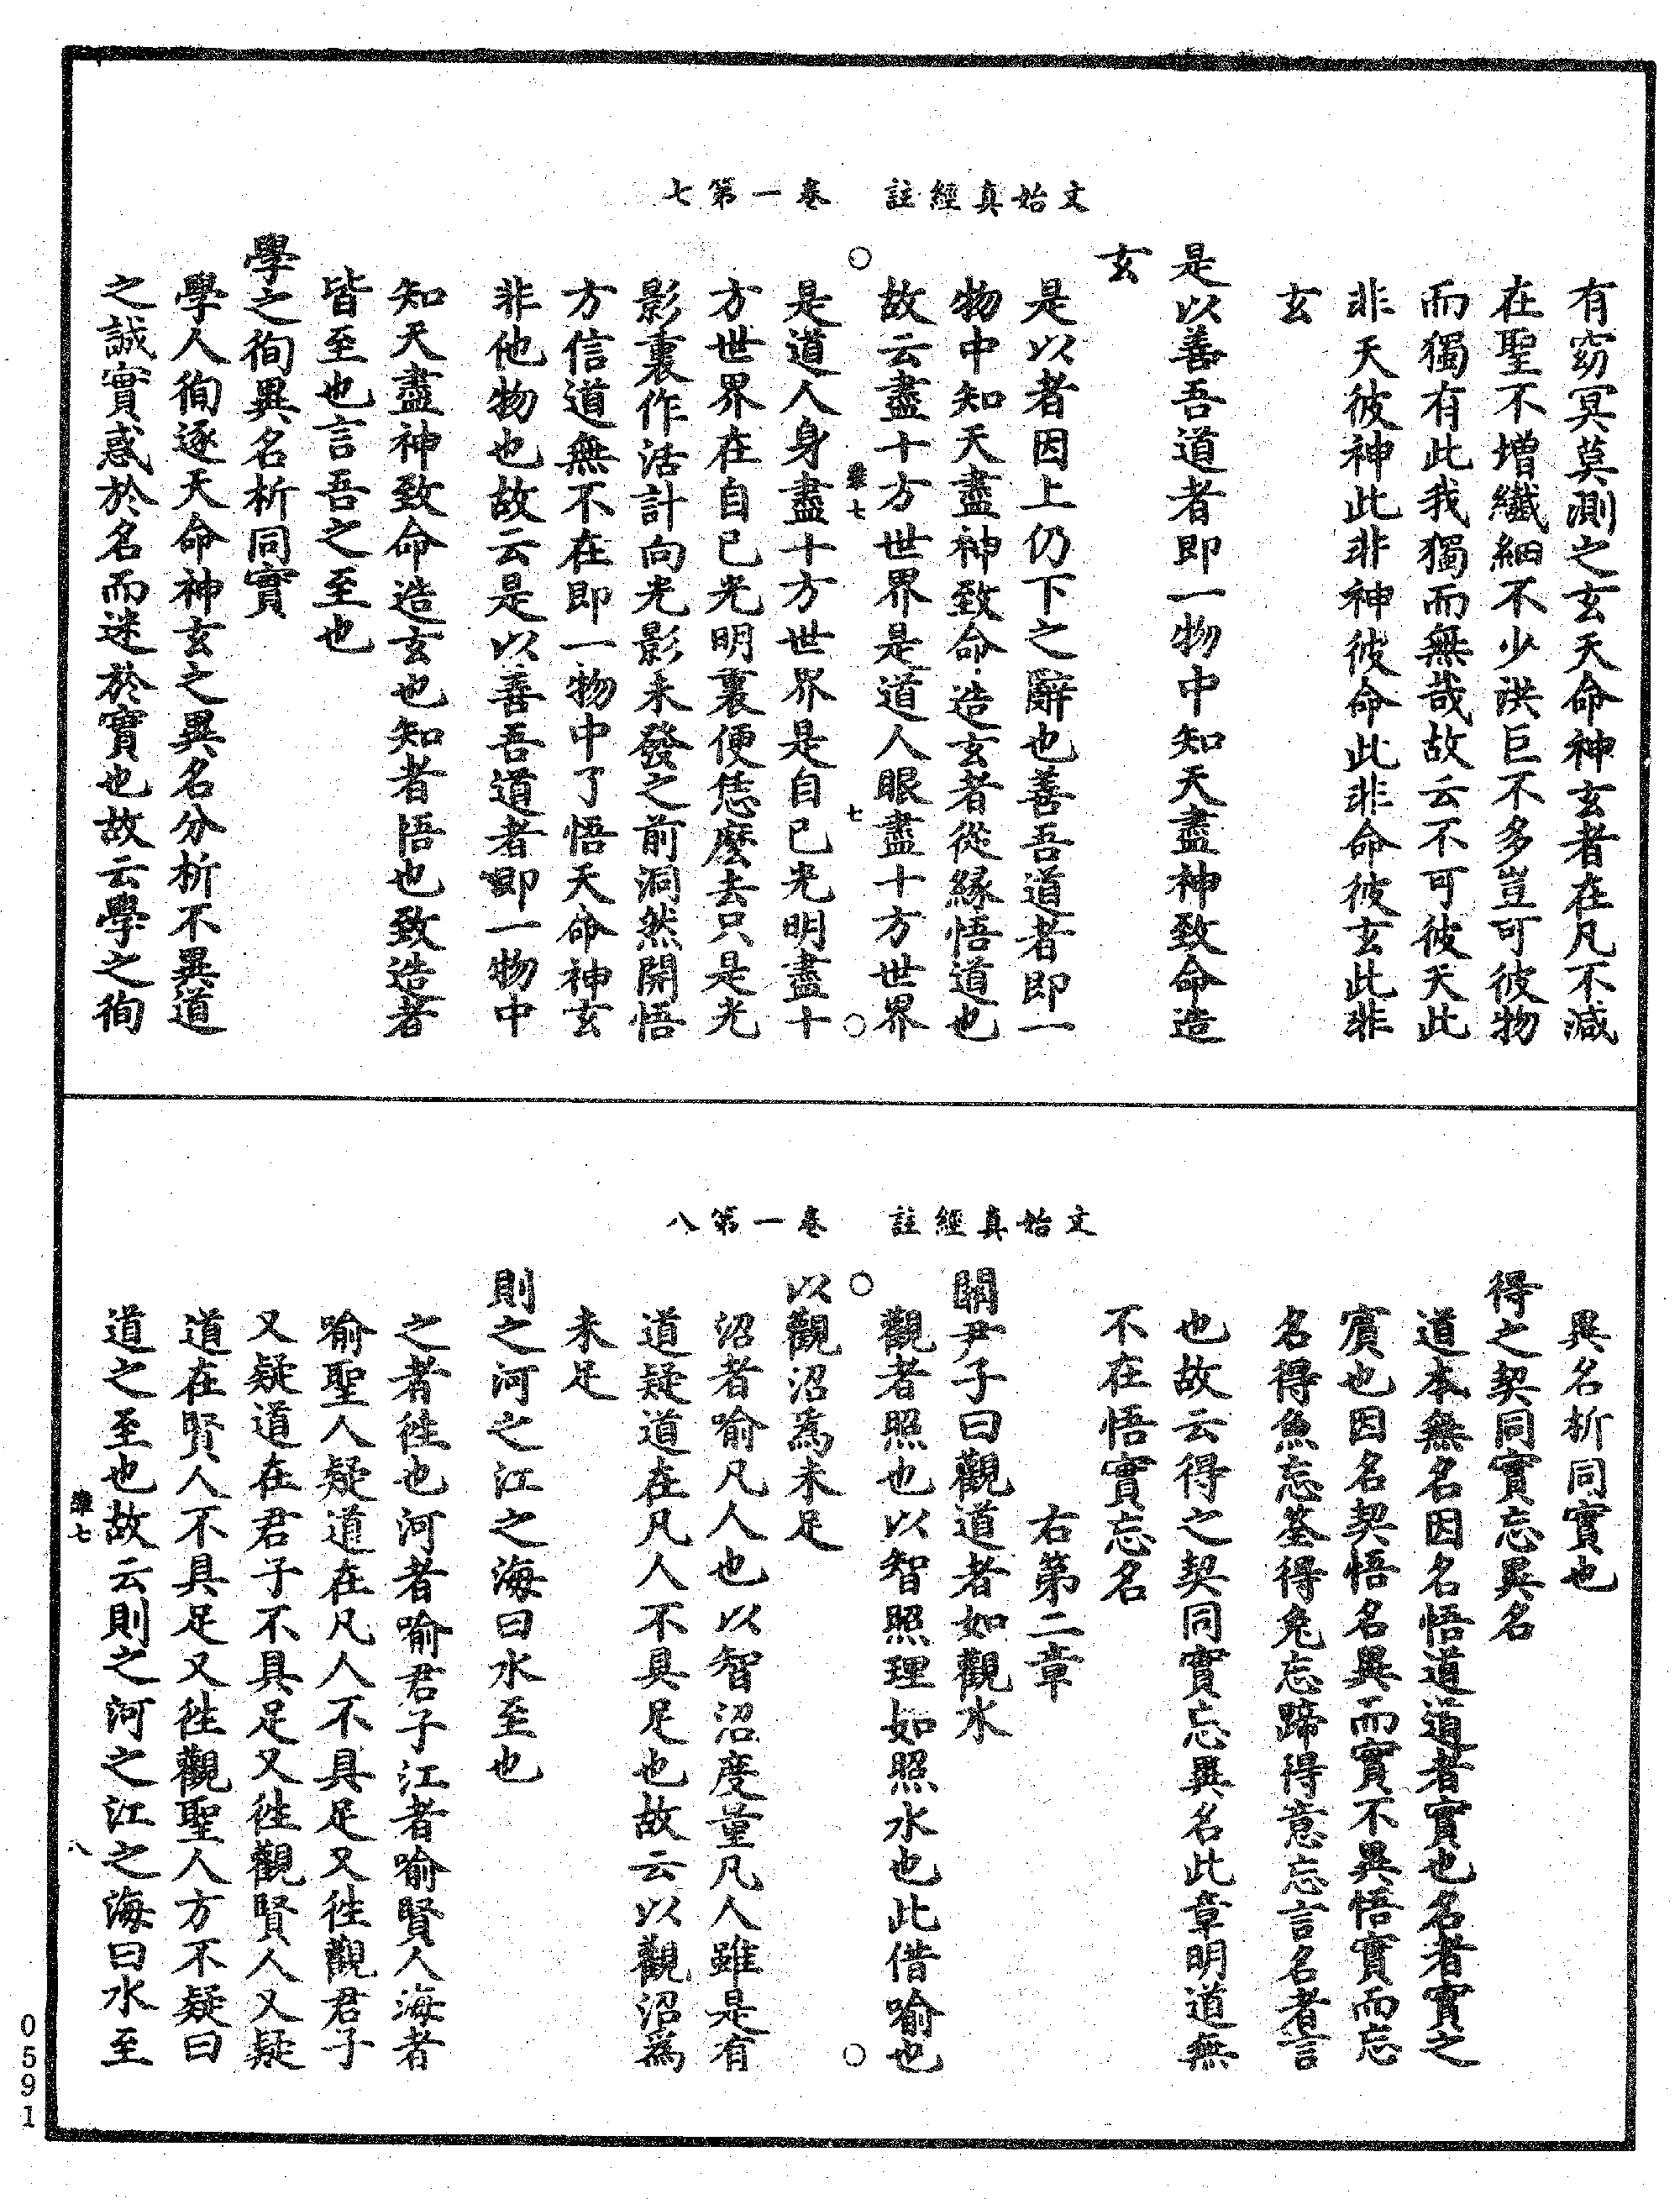 文始真經註　卷一第七
有窈冥莫測之玄天命神玄者在凡不減
在聖不增纖細不少洪巨不多豈可彼物
而獨有此我獨而無哉故云不可彼天此
非天彼神此非神彼命此非命彼玄此非
玄
是以善吾道者即一物中知天盡神致命造
玄
是以者因上仍下之辭也善吾道者即一
物中知天盡神致命造玄者從緣悟道也
故云盡十方世界是道人眼盡十方世界
○
難七
七
○
是道人身盡十方世界是自己光明盡十
方世界在自己光明裏便恁麼去只是光
影裏作活計向光影未發之前洞然開悟
方信道無不在即一物中了悟天命神玄
非他物也故云是以善吾道者即一物中
知天盡神致命造玄也知者悟也致造者
皆至也言吾之至也
學之徇異名析同實
學人徇逐天命神玄之異名分析不異道
之誠實惑於名而迷於實也故云學之徇
文始真經註　卷一第八
異名析同實也
得之契同實忘異名
道本無名因名悟道道者實也名者實之
賓也因名契悟名異而實不異悟實而忘
名得魚忘筌得兔忘蹄得意忘言名者言
也故云得之契同實忘異名此章明道無
不在悟實忘名
右第二章
關尹子曰觀道者如觀水
觀者照也以智照理如照水也此借喻也
○
○
以觀沼為未足
沼者喻凡人也以智沼度量凡人雖是有
道疑道在凡人不具足也故云以觀沼為
未足
則之河之江之海曰水至也
之者徃也河者喻君子江者喻賢人海者
喻聖人疑道在凡人不具足又徃觀君子
又疑道在君子不具足又徃觀賢人又疑
道在賢人不具足又徃觀聖人方不疑曰
道之至也故云則之河之江之海曰水至
難七
八
0591